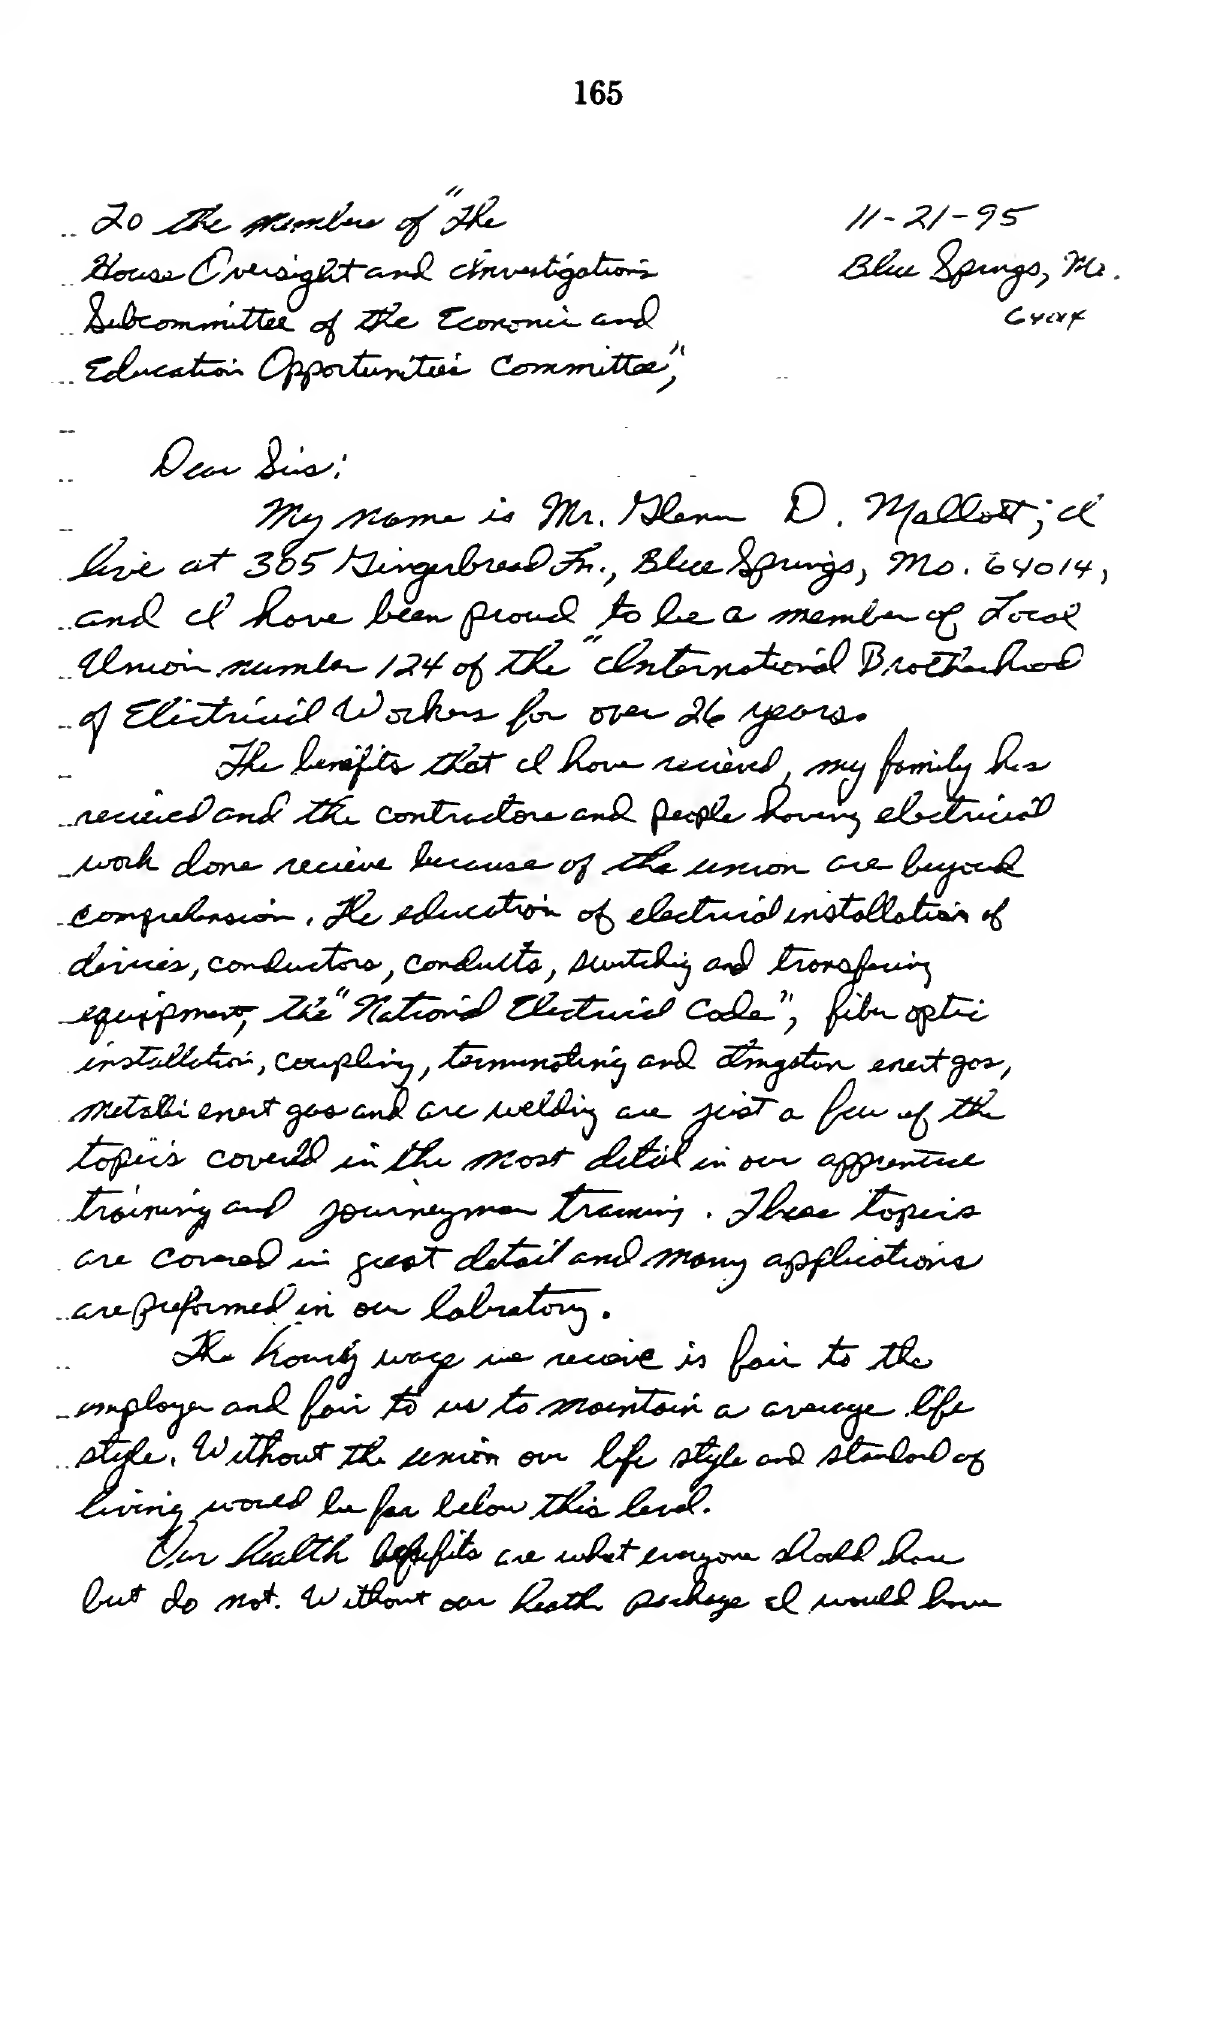 165
To the members of "The
House Oversight and Investigations
Subcommittee of the Economic and
Education Opportunities Committee",
11-21-95
Blue Springs, Mo.
Dear Sirs:
My name is Mr. Glenn D. Mallott; I
live at 305 Gingerbread Ln., Blue Springs, Mo. 64014,
and I have been proud to be a member of Local
Union number 124 of the "International Brotherhood
of Electrical Workers for over 26 years.
The benefits that I have recieved, my family has
recieved and the contractors and people having electrical
work done recieve because of the union are beyond
comprehension. The education of electrical installation of
devices, conductors, conduits, switching and transfering
equipment, the "National Electrical Code", fiber optic
installation, coupling, terminating and tungston enert gas,
metallic enert gas and arc welding are just a few of the
topics covered in the most detail in our apprentice
training and journeyman training. These topics
are covered in great detail and many applications
are preformed in our labratory.
The hourly wage we recieve is fair to the
employer and fair to us to maintain a average life
style. Without the union our life style and standard of
living would be far below this level.
Our health benefits are what everyone should have
but do not. Without our heath package I would have